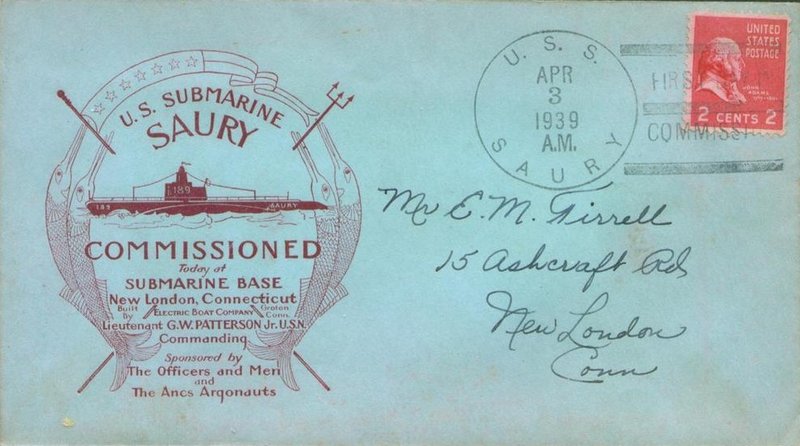 U.S. SUBMARINE
SAURY
189
189 SAURY
COMMISSIONED
Today at
SUBMARINE BASE
New London, Connecticut
Built By ELECTRIC BOAT COMPANY Groton Conn.
Lieutenant G.W. PATTERSON Jr. U.S.N.
Commanding
Sponsored by
The Officers and Men
and
The Ancs Argonauts
U. S. S.
APR
3
1939
A.M.
SAURY
FIRS
COMMISSI
UNITED
STATES
POSTAGE
JOHN
ADAMS
2 CENTS 2
Mr E. M. Tirrell
15 Ashcraft Rd
New London
Conn